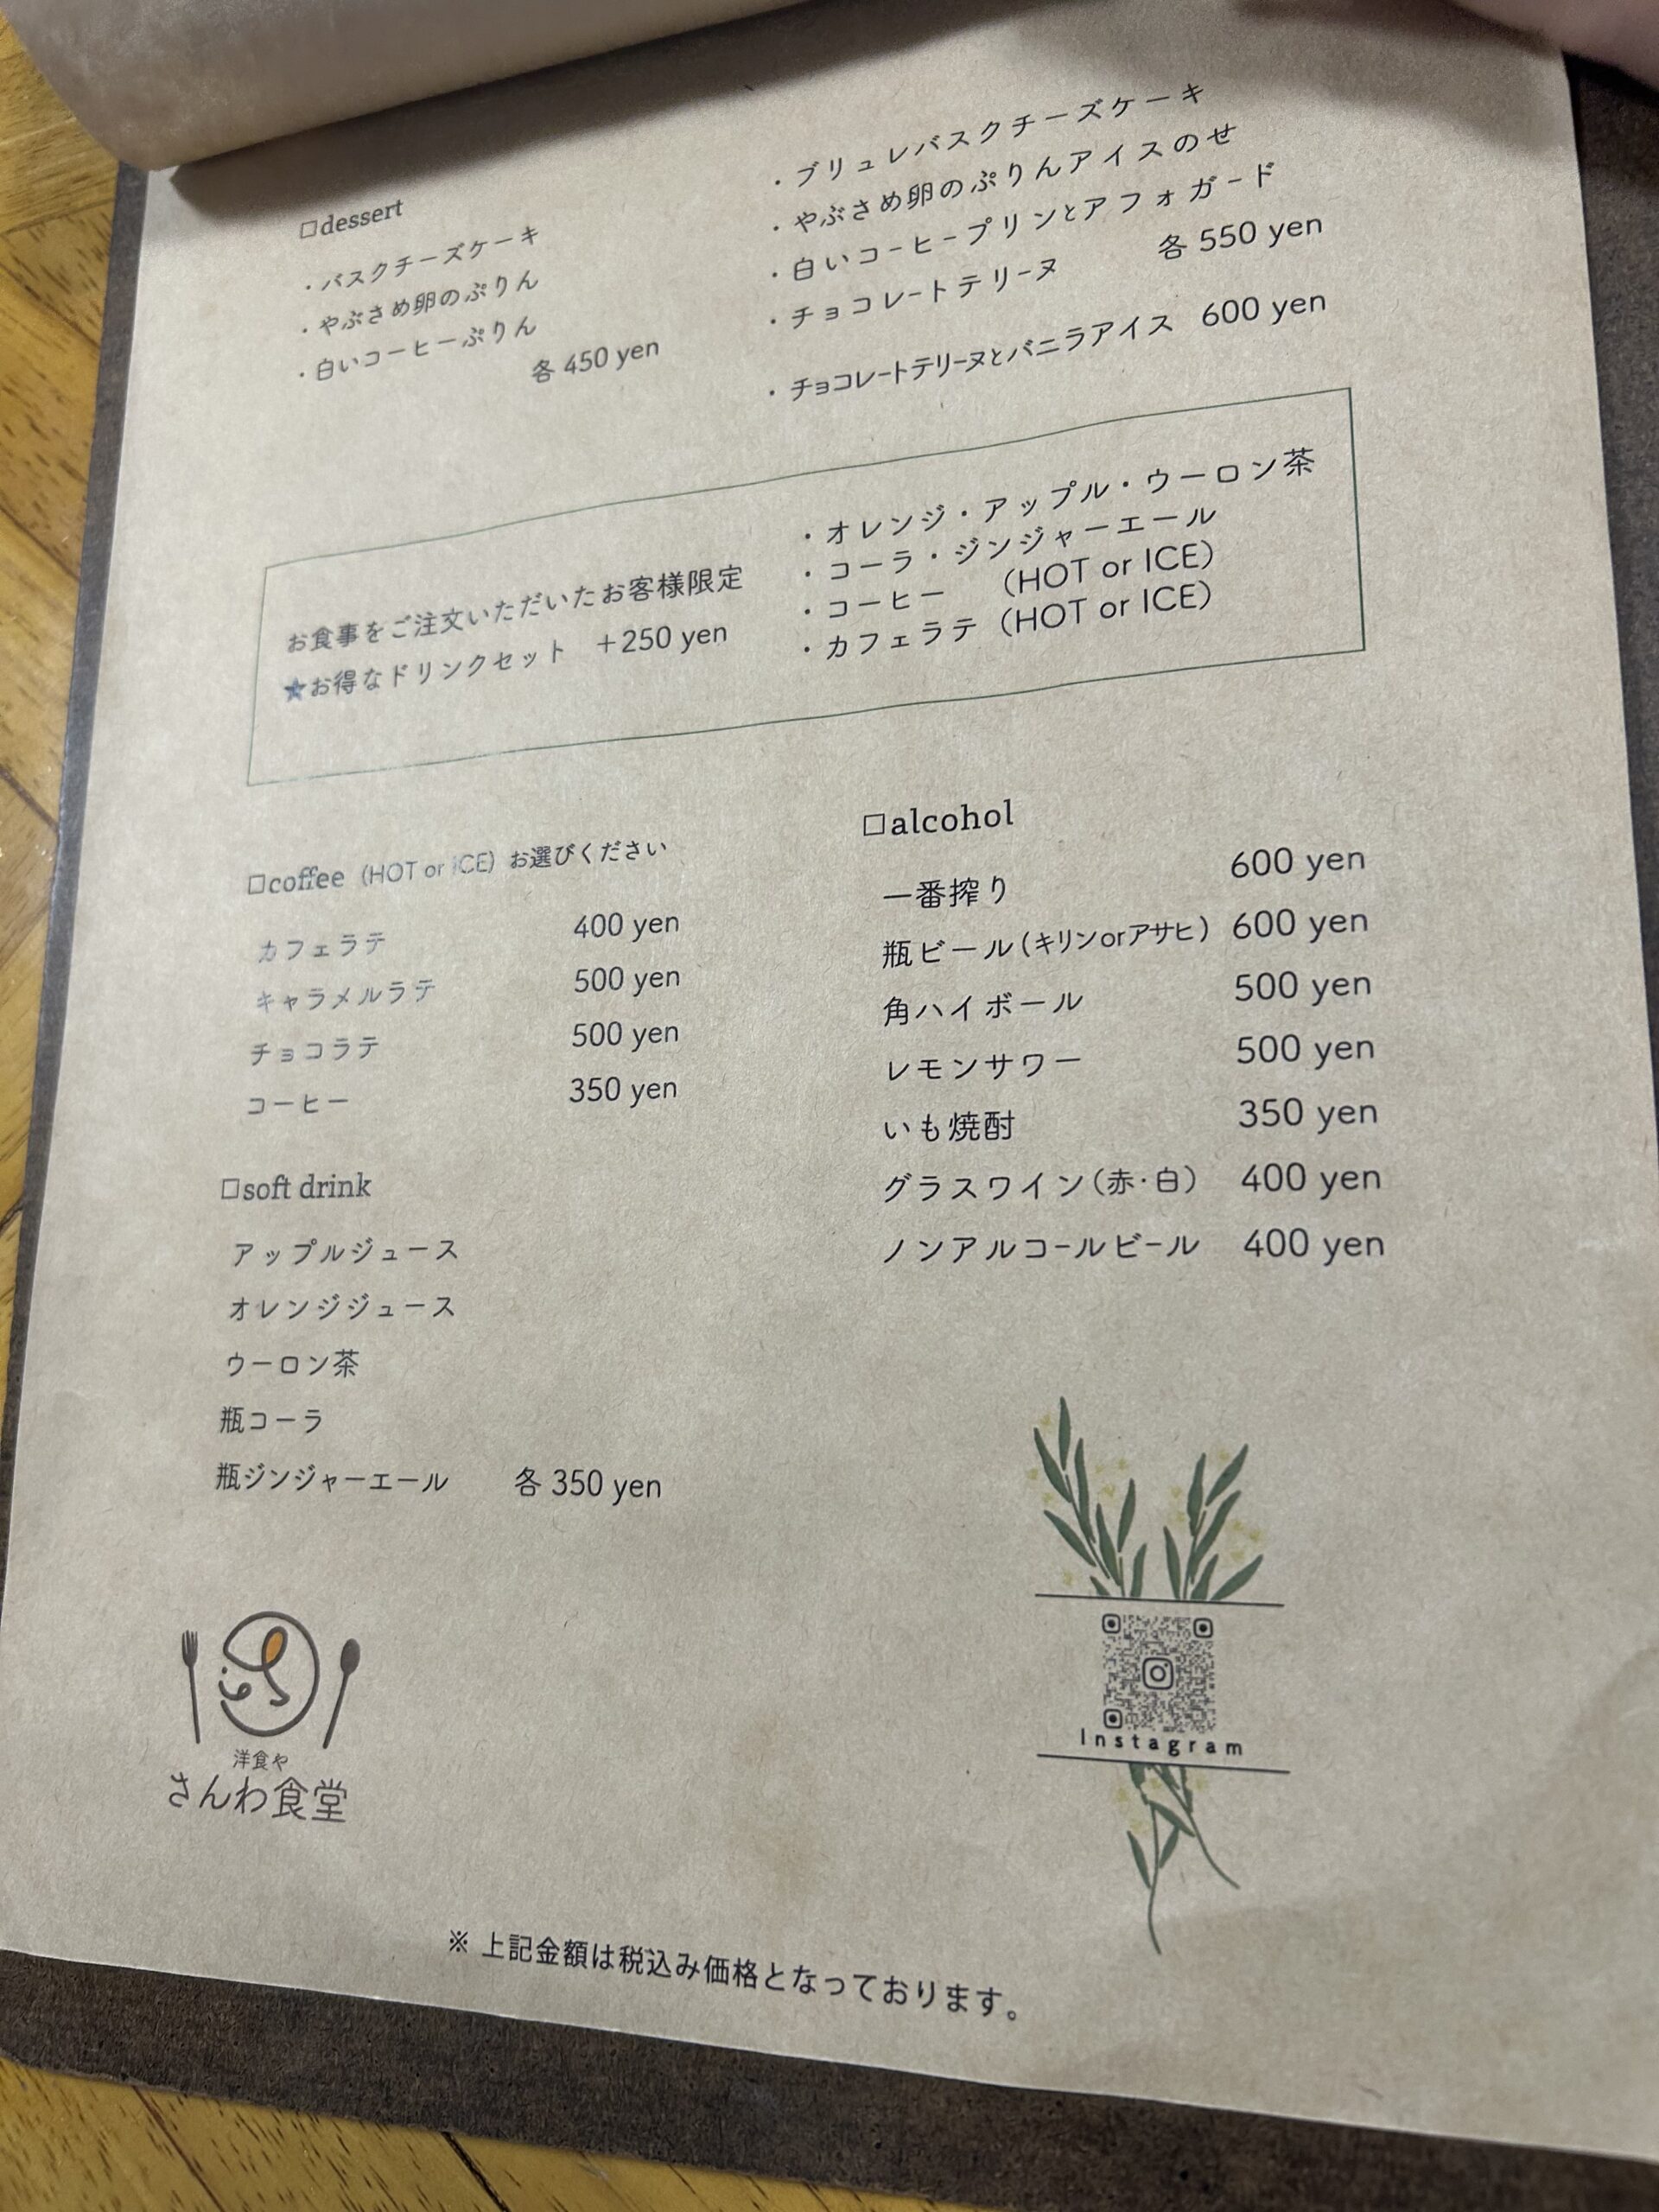 □dessert
・バスクチーズケーキ
・やぶさめ卵のぷりん
・白いコーヒーぷりん
各 450 yen
・ブリュレバスクチーズケーキ
・やぶさめ卵のぷりんアイスのせ
・白いコーヒープリンとアフォガード
・チョコレートテリーヌ
各 550 yen
・チョコレートテリーヌとバニラアイス 600 yen
お食事をご注文いただいたお客様限定
★お得なドリンクセット +250 yen
・オレンジ・アップル・ウーロン茶
・コーラ・ジンジャーエール
・コーヒー (HOT or ICE)
・カフェラテ (HOT or ICE)
□coffee (HOT or ICE) お選びください
カフェラテ 400 yen
キャラメルラテ 500 yen
チョコラテ 500 yen
コーヒー 350 yen
□soft drink
アップルジュース
オレンジジュース
ウーロン茶
瓶コーラ
瓶ジンジャーエール 各 350 yen
□alcohol
一番搾り 600 yen
瓶ビール(キリンorアサヒ) 600 yen
角ハイボール 500 yen
レモンサワー 500 yen
いも焼酎 350 yen
グラスワイン(赤・白) 400 yen
ノンアルコールビール 400 yen
Instagram
洋食や
さんわ食堂
※ 上記金額は税込み価格となっております。